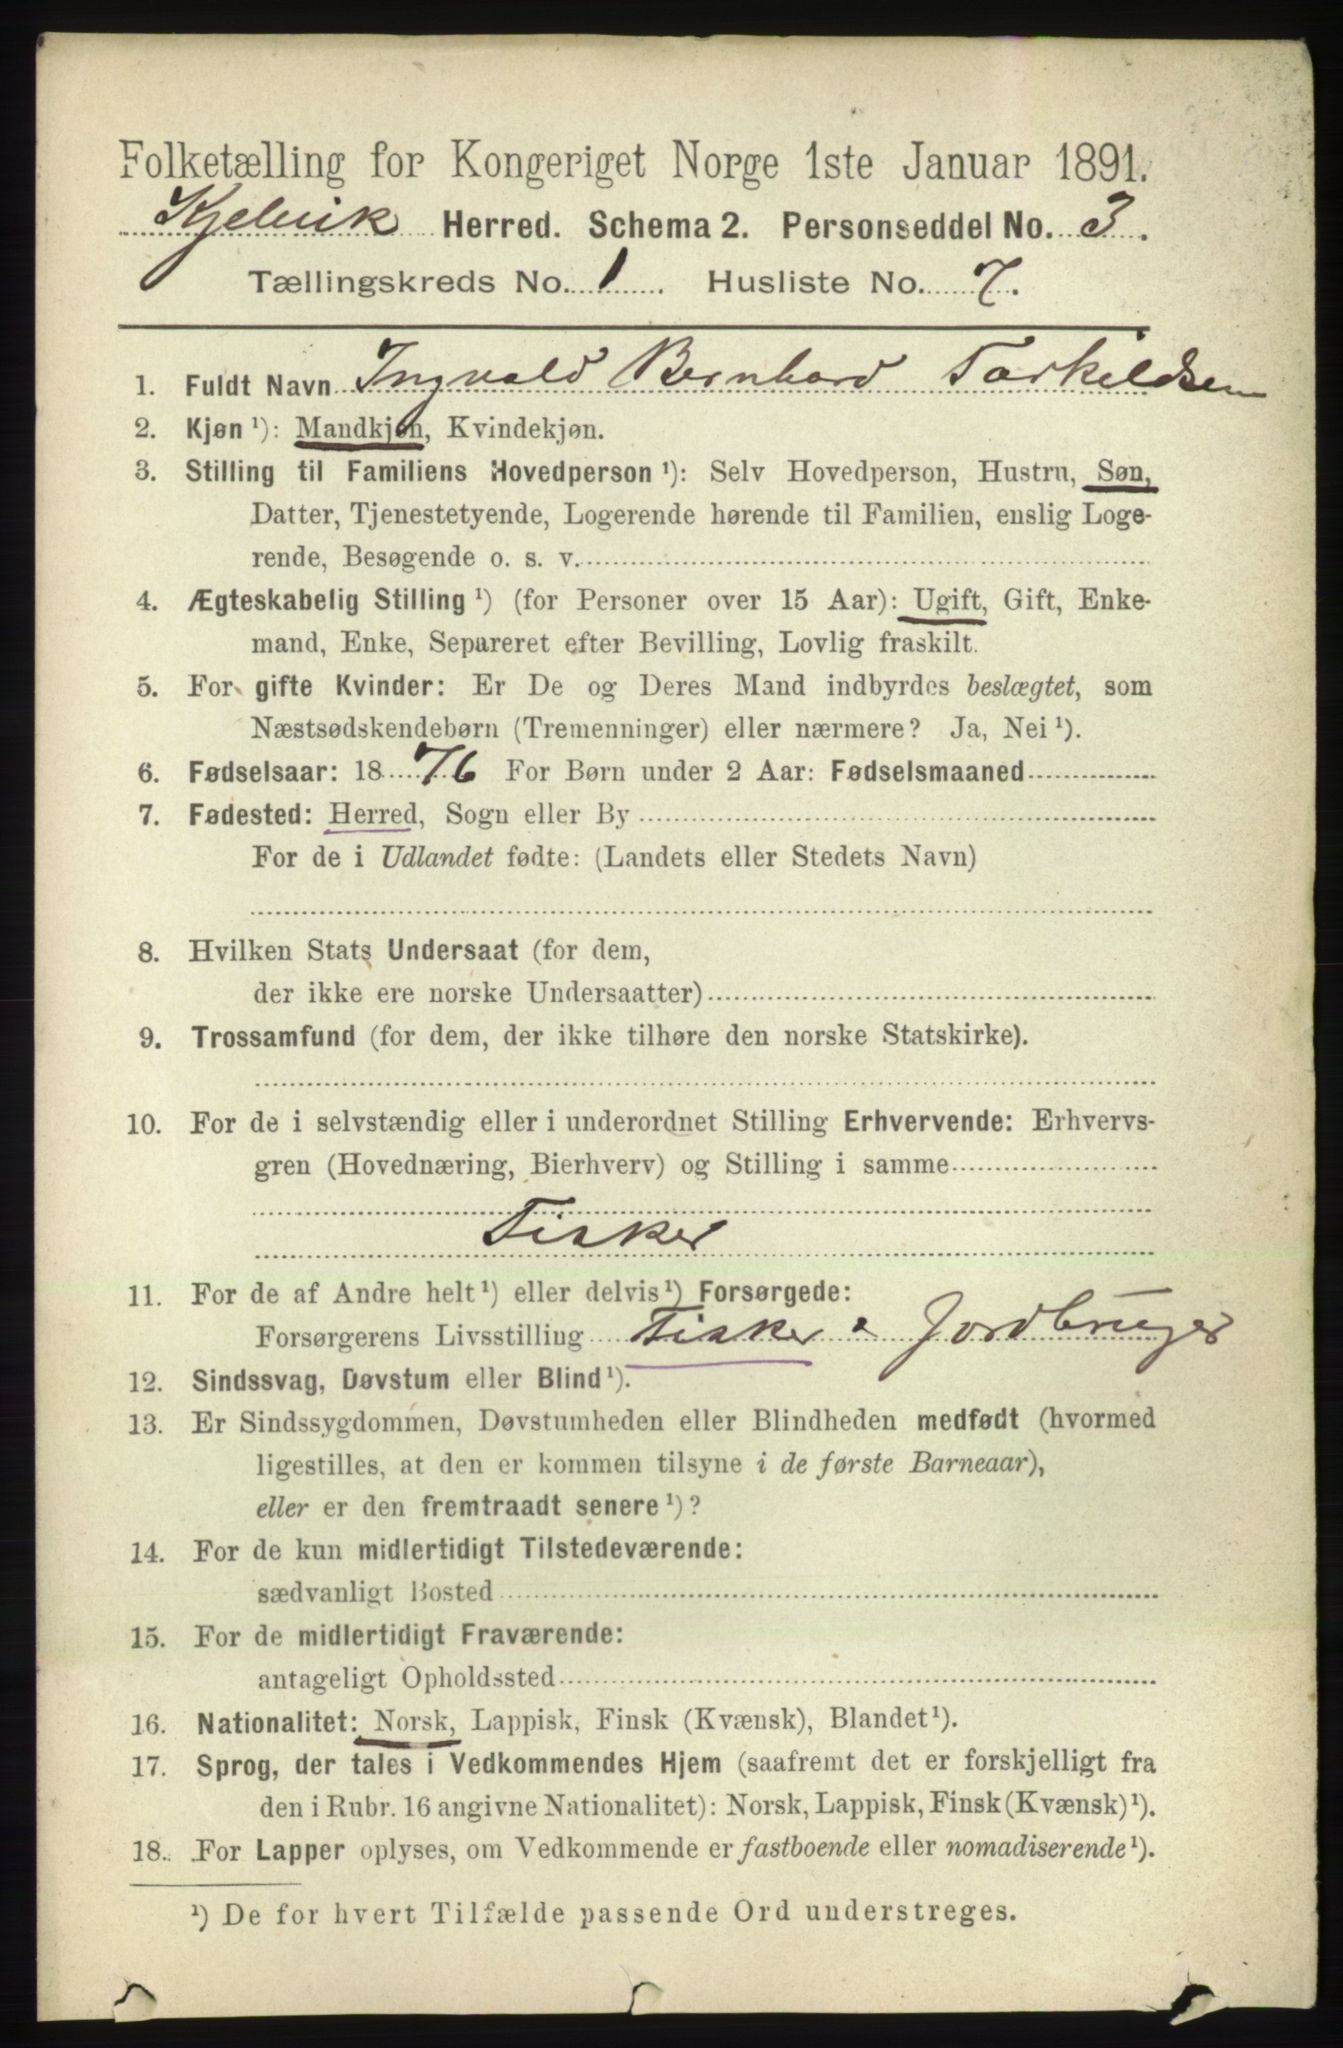 Folketælling for Kongeriget Norge 1ste Januar 1891.
Kjelvik Herred. Schema 2. Personseddel No. 3.
Tællingskreds No. 1. Husliste No. 7.
1. Fuldt Navn Ingvald Bernhard Torkildsen
2. Kjøn ¹): Mandkjøn, Kvindekjøn.
3. Stilling til Familiens Hovedperson ¹): Selv Hovedperson, Hustru, Søn,
Datter, Tjenestetyende, Logerende hørende til Familien, enslig Loge-
rende, Besøgende o. s. v.
4. Ægteskabelig Stilling ¹) (for Personer over 15 Aar): Ugift, Gift, Enke-
mand, Enke, Separeret efter Bevilling, Lovlig fraskilt.
5. For gifte Kvinder: Er De og Deres Mand indbyrdes beslægtet, som
Næstsødskendebørn (Tremenninger) eller nærmere? Ja, Nei ¹).
6. Fødselsaar: 1876 For Børn under 2 Aar: Fødselsmaaned
7. Fødested: Herred, Sogn eller By
For de i Udlandet fødte: (Landets eller Stedets Navn)
8. Hvilken Stats Undersaat (for dem,
der ikke ere norske Undersaatter)
9. Trossamfund (for dem, der ikke tilhøre den norske Statskirke).
10. For de i selvstændig eller i underordnet Stilling Erhvervende: Erhvervs-
gren (Hovednæring, Bierhverv) og Stilling i samme
Fisker
11. For de af Andre helt ¹) eller delvis ¹) Forsørgede:
Forsørgerens Livsstilling Fisker & Jordbruger
12. Sindssvag, Døvstum eller Blind ¹).
13. Er Sindssygdommen, Døvstumheden eller Blindheden medfødt (hvormed
ligestilles, at den er kommen tilsyne i de første Barneaar),
eller er den fremtraadt senere ¹)?
14. For de kun midlertidigt Tilstedeværende:
sædvanligt Bosted
15. For de midlertidigt Fraværende:
antageligt Opholdssted
16. Nationalitet: Norsk, Lappisk, Finsk (Kvænsk), Blandet ¹).
17. Sprog, der tales i Vedkommendes Hjem (saafremt det er forskjelligt fra
den i Rubr. 16 angivne Nationalitet): Norsk, Lappisk, Finsk (Kvænsk) ¹).
18. For Lapper oplyses, om Vedkommende er fastboende eller nomadiserende ¹).
¹) De for hvert Tilfælde passende Ord understreges.